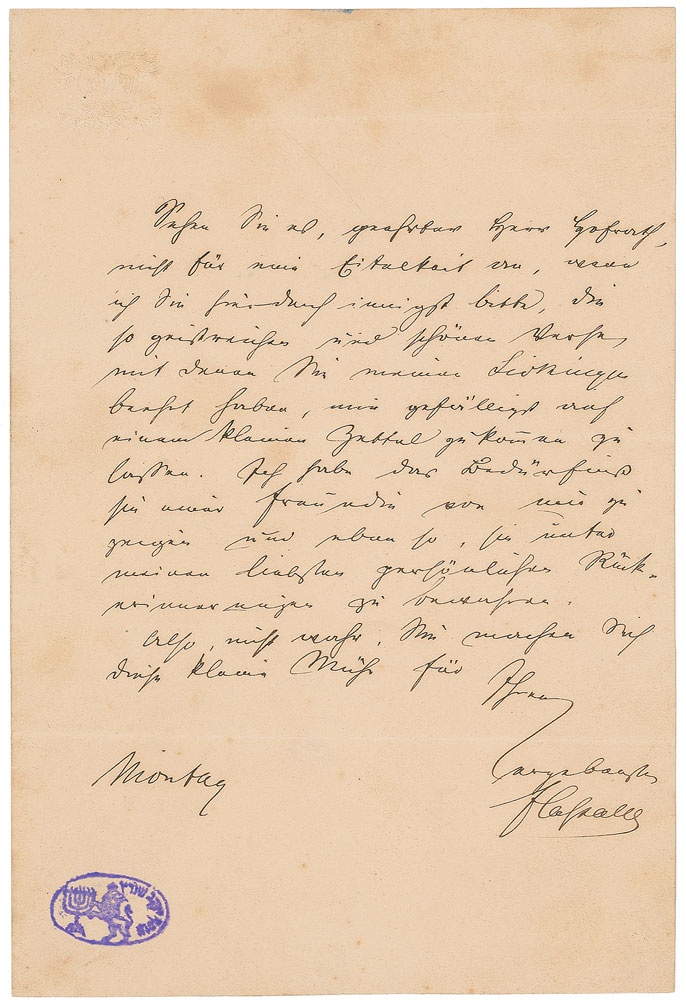 Sehen Sie es, geehrter Herr Hofrath,
nicht für eine Eitelkeit an, wenn
ich Sie hierdurch innigst bitte, die
so geistreichen und schönen Verse,
mit denen Sie meinen Sickingen
beehrt haben, mir gefälligst auf
einem kleinen Zettel zukommen zu
lassen. Ich habe das Bedürfniß
sie einer Freundin von mir zu
zeigen und eben so, sie unter
meinen liebsten persönlichen Rück-
erinnerungen zu bewahren.
Also, nicht wahr, Sie machen Sich
diese kleine Mühe für Ihren
ergebensten
Montag
FLassalle